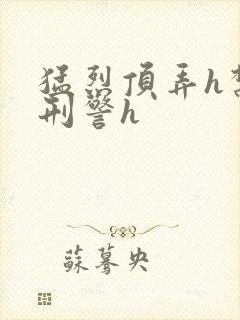 猛烈頂弄h
刑警h
蘇驀央